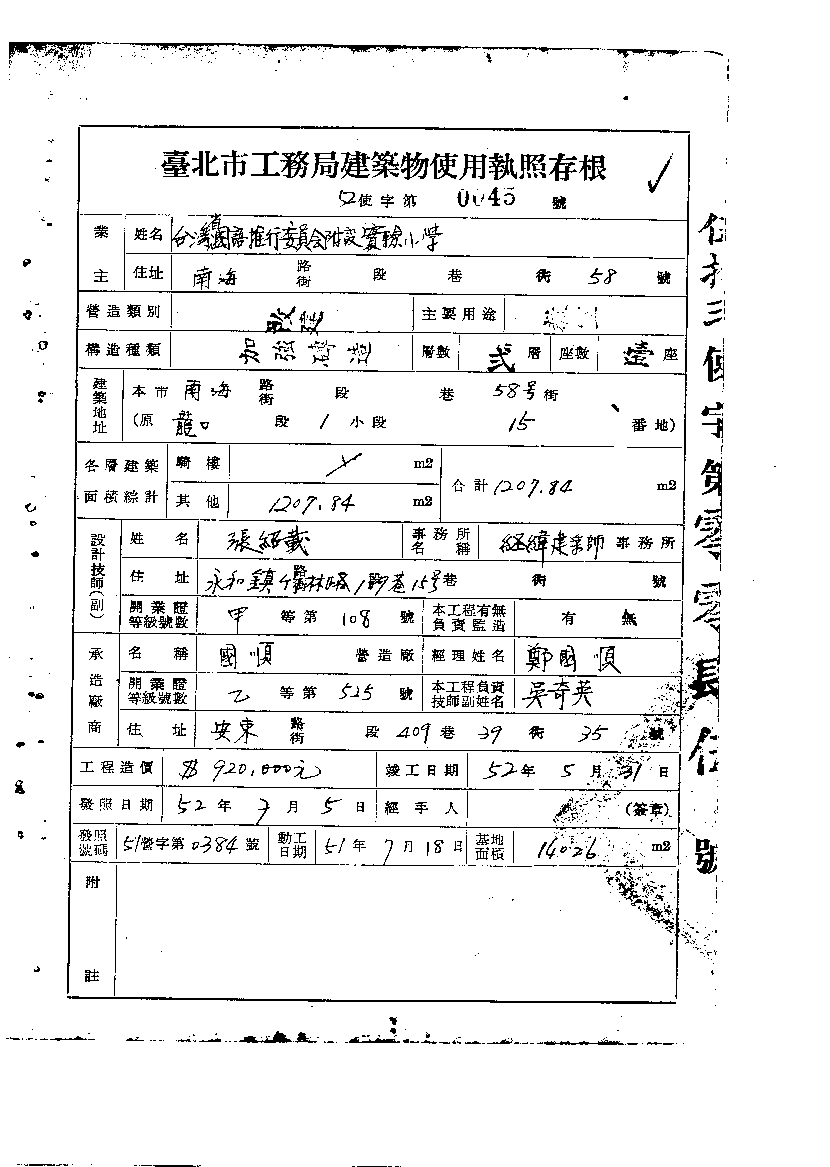 臺北市工務局建築物使用執照存根
52使字第 0045 號
業主 姓名 台灣省國語推行委員會附設實驗小學
住址 南海 路街 段 巷 街 58 號
營造類別 改建 主要用途
構造種類 加強磚造 層數 弍 層 座數 壹 座
建築地址 本市 南海 路街 段 巷 58号 街
(原 龍口 段 1 小段 15 番地)
各層建築面積綜計 騎樓 m2 合計 1207.84 m2
其他 1207.84 m2
設計技師(副) 姓名 張紹載 事務所名稱 經緯建築師 事務所
住址 永和鎮 路 巷 15号 街 號
開業證等級號數 甲 等第 108 號 本工程有無負責監造 有 無
承造廠商 名稱 國順 營造廠 經理姓名 鄭國順
開業證等級號數 乙 等第 525 號 本工程負責技師副姓名 吳奇英
住址 安東 路街 段 409 巷 39 街 35 號
工程造價 $920,000元 竣工日期 52年 5月 31日
發照日期 52年 7月 5日 經手人 (簽章)
發照號碼 51營字第0384號 動工日期 51年 7月18日 基地面積 14026 m2
附註
伍拾弍使字第零零零肆伍號